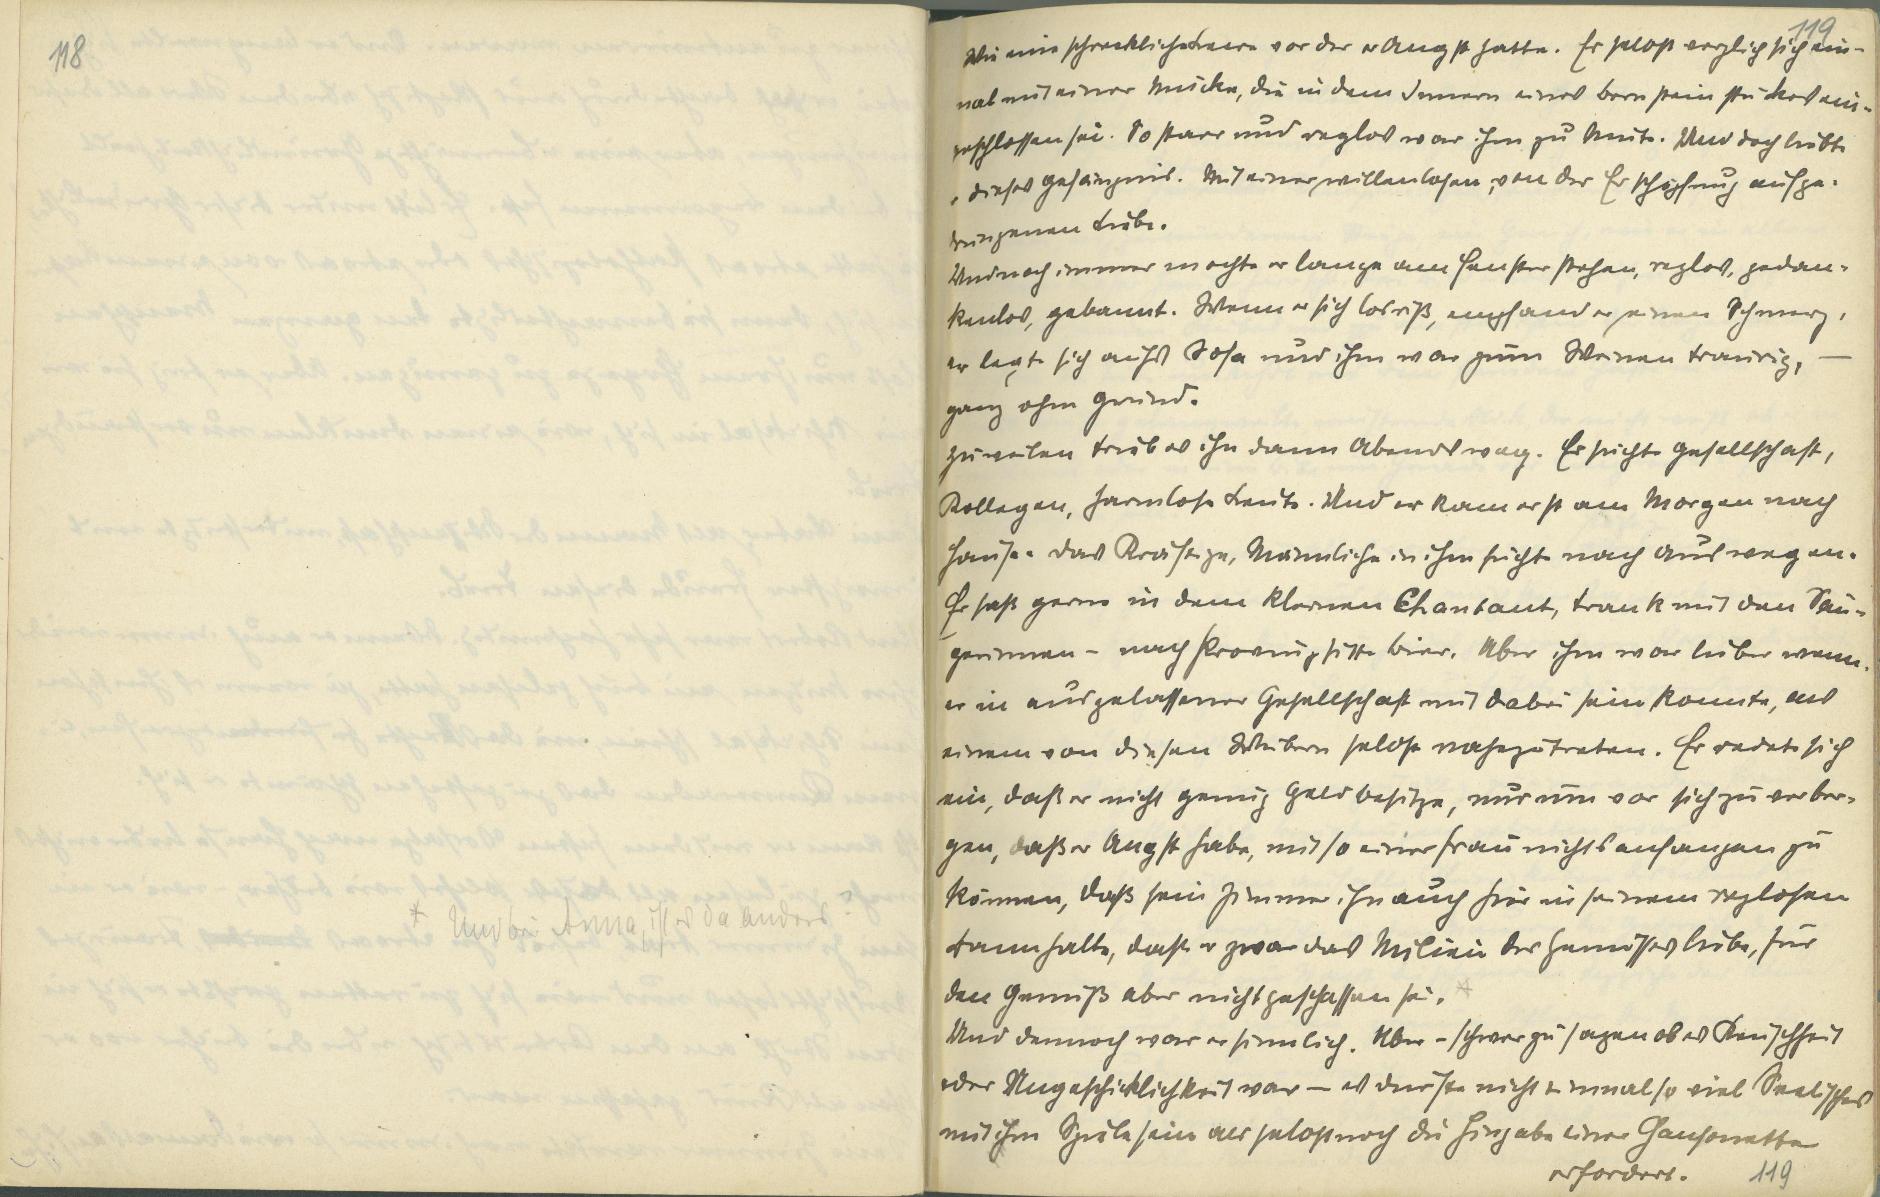 118
* Und bei Anna, ist es da anders?
119
Wie eine schreckliche Leere vor der er Angst hatte. Er selbst verglich sich ein-
mal mit einer Mücke, die in dem Innern eines Bernsteinstückes ein-
geschlossen sei. So starr und reglos war ihm zu Mute. Und doch liebte
er dieses Gefängnis. Mit einer willenlosen, von der Erschöpfung aufge-
drungenen Liebe.
Und noch immer mochte er lange am Fenster stehen, reglos, gedan-
kenlos, gebannt. Wenn er sich losriß, empfand er einen Schmerz,
er legte sich aufs Sofa und ihm war zum Weinen traurig, —
ganz ohne Grund.
Zuweilen trieb es ihn dann Abends weg. Er suchte Gesellschaft,
Kollegen, harmlose Leute. Und er kam erst am Morgen nach
Hause. Das Kräftige, Männliche in ihm suchte nach Auswegen.
Er saß gerne in dem kleinen Chantant, trank mit den Sän-
gerinnen – nach Provinzsitte Bier. Aber ihm war lieber wenn
er in ausgelassener Gesellschaft mit dabei sein konnte, als
einem von diesen Weibern selbst nahezutreten. Er redete sich
ein, daß er nicht genug Geld besitze, nur um vor sich zu verber-
gen, daß er Angst habe, mit so einer Frau nichts anfangen zu
können, daß sein Zimmer ihn auch hier in seinem reglosen
Bann halte, daß er zwar das Milieu des Genusses liebe, für
den Genuß aber nicht geschaffen sei. *
Und dennoch war er sinnlich. Aber – schwer zu sagen ob es Keuschheit
oder Ungeschicklichkeit war — es durfte nicht einmal so viel Seelisches
mit ihm Spiele sein als selbst noch die Hingabe einer Chansonette
erfordert.
119